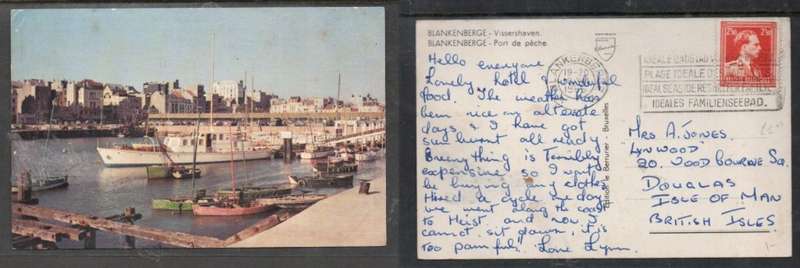 BLANKENBERGE - Vissershaven.
BLANKENBERGE - Port de pêche.
Hello everyone
Lovely hotel & wonderful
food. The weather has
been nice on alternate
days & I have got
sunburnt all ready.
Everything is terribly
expensive so I won't
be buying any clothes
Hired a cycle on day
we went along the coast
to Heist and now I
cannot sit down, it's
too painful. Love Lynn.
Edition le Berrurier - Bruxelles
BLANKENBERGE
PLAGE IDEALE
IDEALES FAMILIENSEEBAD.
2F50
2F50
Mrs A. Jones.
Lynwood
20. Woodbourne Sq.
Douglas
Isle of Man
British Isles